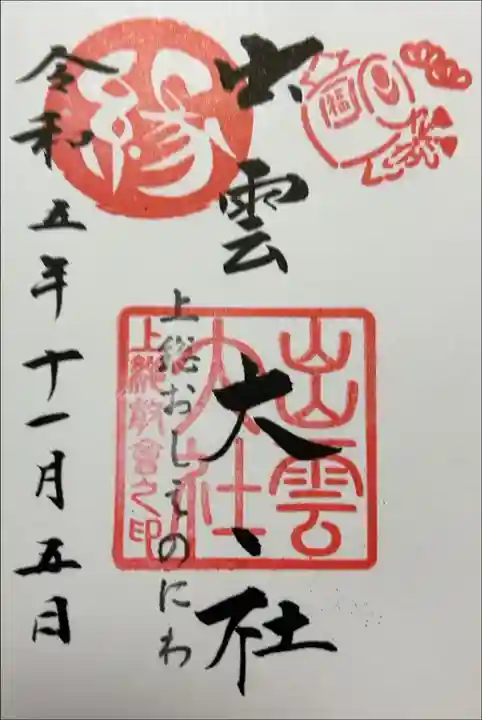 福
出雲大社
出雲
大社
上総教會之印
上総おしえのにわ
縁
令和五年十一月五日